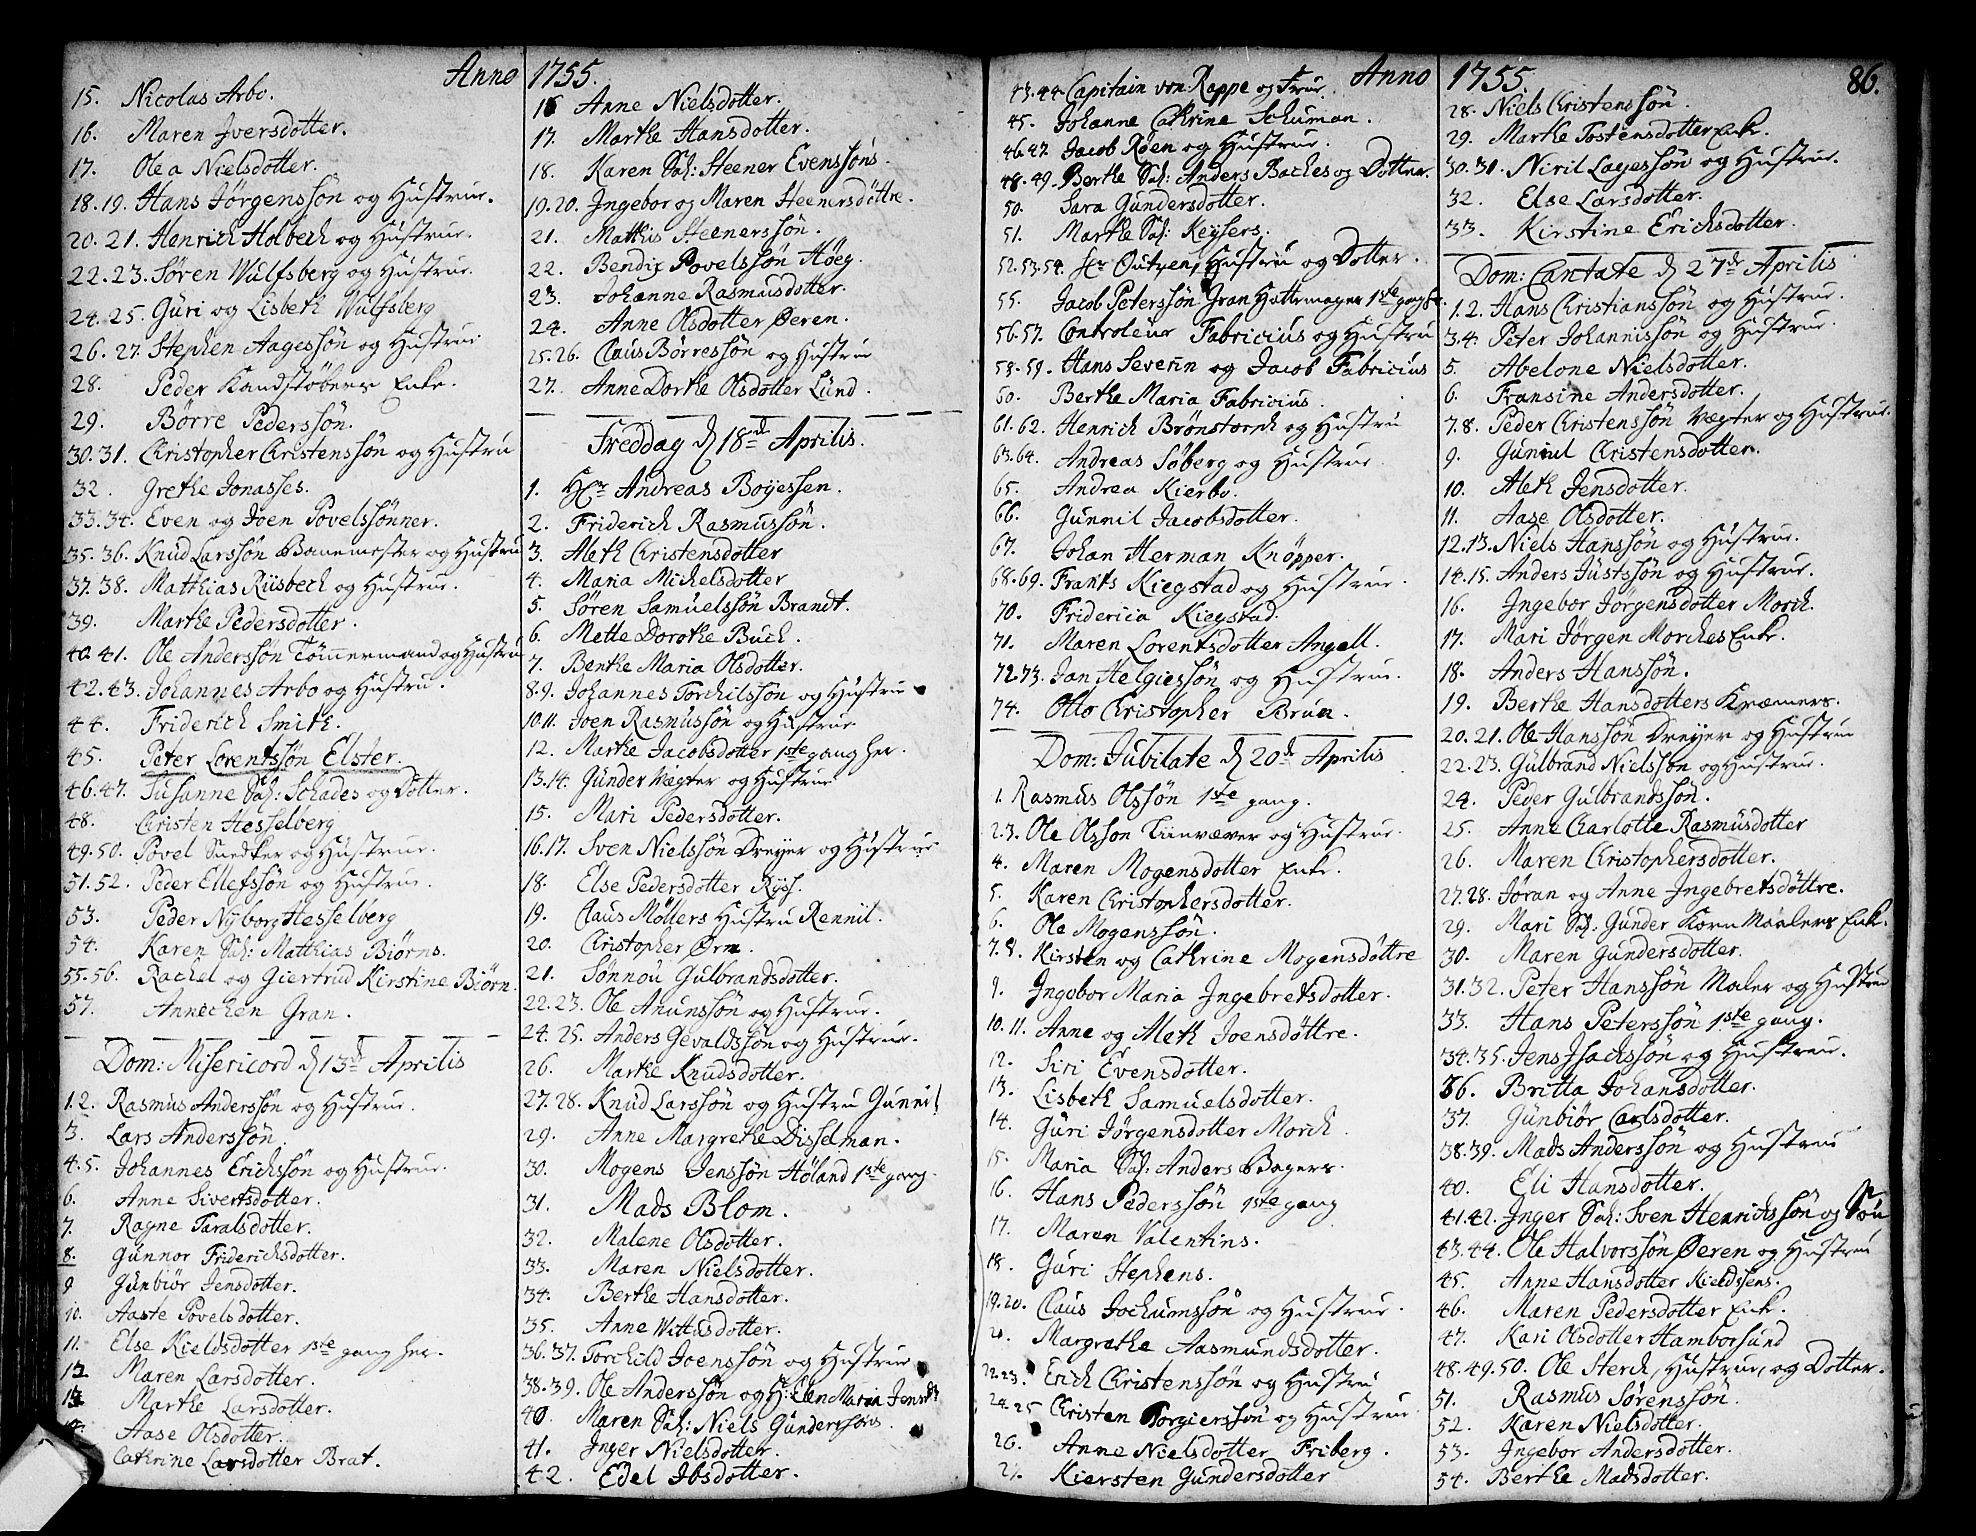 Anno 1755.
15. Nicolas Arbo.
16. Maren Iversdotter.
17. Olea Nielsdotter.
18.19. Hans Jørgenssøn og Hustrue.
20.21. Henrich Holbech og Hustrue.
22.23. Søren Wulfsberg og Hustrue.
24.25. Guri og Lisbeth Wulfsberg
26.27. Stephen Aagessøn og Hustrue
28. Peder Kandstøbers Enke.
29. Børre Pederssøn.
30.31. Christopher Christenssøn og Hustru
32. Grethe Jonasses.
33.34. Even og Joen Povelssønner.
35.36. Knud Larssøn Banemester og Hustru
37.38. Matthias Riisbech og Hustrue.
39. Marthe Pedersdotter.
40.41. Ole Anderssøn Tømmermand og Hustru
42.43. Johannes Arbo og Hustru.
44. Friderich Smith.
45. Peter Lorentssøn Elster.
46.47. Susanne Sal: Schades og Dotter.
48. Christen Hesselberg
49.50. Povel Snedker og Hustrue.
51.52. Peder Ellefssøn og Hustrue.
53. Peder Nyborg Hesselberg
54. Karen Sal: Matthias Biørns.
55.56. Rachel og Giertrud Kirstine Biørn.
57. Annichen Gran.
Dom: Misericord d 13de Aprilis
1.2. Rasmus Anderssøn og Hustrue.
3. Lars Anderssøn.
4.5. Johannes Erichssøn og Hustrue.
6. Anne Sivertsdotter.
7. Ragne Taralsdotter.
8. Gunnor Friderichsdotter.
9 Gunbiør Jensdotter.
10. Aaste Povelsdotter.
11. Else Kieldsdotter 1ste gang her.
12 Maren Larsdotter.
13 Marthe Larsdotter.
14. Aase Olsdotter.
Cathrine Larsdotter Brat.
16 Anne Nielsdotter.
17. Marthe Hansdotter.
18. Karen Sal: Steener Evenssøns.
19.20. Ingebor og Maren Steenersdøttre.
21. Matthis Steenerssøn.
22. Bendix Povelssøn Høeg.
23. Johanne Rasmusdotter.
24. Anne Olsdotter Øeren.
25.26. Claus Børressøn og Hustrue
27. Anne Dorthe Olsdotter Lund.
Freddag d 18de Aprilis.
1. Hr Andreas Boyessen.
2. Friderich Rasmussøn.
3. Aleth Christensdotter
4. Maria Michelsdotter
5. Søren Samuelssøn Brandt.
6. Mette Dorothe Buch.
7. Benthe Maria Olsdotter.
8.9. Johannes Torchilssøn og Hustrue
10.11. Joen Rasmussøn og Hustrue
12. Marthe Jacobsdotter 1ste gang her.
13.14. Gunder Vægter og Hustrue
15. Mari Pedersdotter.
16.17. Sven Nielssøn Dreyer og Hustrue
18. Else Pedersdotter Rysf.
19. Claus Møllers Hustru Rennil.
20. Christopher Ørn.
21. Sønnou Gulbrandsdotter.
22.23. Ole Anunssøn og Hustrue.
24.25. Anders Gevaldssøn og Hustrue.
26. Marthe Knudsdotter.
27.28. Knud Larssøn og Hustru Gunnil
29. Anne Margrethe Disselman.
30. Mogens Jenssøn Høland 1ste gang.
31. Mads Blom.
32. Malene Olsdotter.
33. Maren Nielsdotter.
34. Berthe Hansdotter.
35. Anne Wittisdotter.
36.37. Torchild Joenssøn og Hustrue
38.39. Ole Anderssøn og H: Elen Maria Jensd
40. Maren Sal: Niels Gunderssøns
41. Inger Nielsdotter.
42. Edel Ibsdotter.
Anno 1755 86.
43.44. Capitain von Rappe og Frue.
45. Johanne Cathrine Schuman.
46.47. Jacob Røen og Hustrue.
48.49. Berthe Sal: Anders Baches og Dotter.
50. Sara Gundersdotter.
51. Marthe Sal: Keysers.
52.53.54. Hr Outzen, Hustru og Dotter.
55. Jacob Peterssøn Gran Hattemager 1ste gang
56.57. Controleur Fabricius og Hustru
58.59. Hans Severin og Jacob Fabricius
60. Berthe Maria Fabricius.
61.62. Henrich Brønstorph og Hustru
63.64. Andreas Søberg og Hustrue
65. Andrea Kierbo.
66. Gunnil Jacobsdotter.
67. Johan Herman Knøpper.
68.69. Frants Kiegstad og Hustrue.
70. Fridericia Kiegstad.
71. Maren Lorentsdotter Angell.
72.73. Jan Helgiessøn og Hustrue.
74. Otto Christopher Bruun.
Dom: Jubilate d 20de Aprilis
1. Rasmus Olssøn 1ste gang.
2.3. Ole Olsson Liinvæver og Hustrue.
4. Maren Mogensdotter Enke.
5. Karen Christophersdotter.
6. Ole Mogenssøn.
7.8. Kirsten og Cathrine Mogensdøttre
9. Ingebor Maria Ingebretsdotter.
10.11. Anne og Aleth Joensdøttre.
12. Siri Evensdotter.
13. Lisbeth Samuelsdotter.
14. Guri Jørgensdotter Morch
15. Maria Sal: Anders Bagers.
16. Hans Pederssøn 1ste gang
17. Maren Valentins.
18. Guri Stephens.
19.20. Claus Jochumssøn og Hustrue.
21. Margrethe Aasmundsdotter.
22.23. Erich Christenssøn og Hustru
24.25 Christen Torgierssøn og Hustrue
26. Anne Nielsdotter Friberg.
27. Kiersten Gundersdotter
28. Niels Christenssøn.
29. Marthe Tostensdotter Enke.
30.31. Niril Lagessøn og Hustrue.
32. Else Larsdotter.
33. Kirstine Erichsdotter.
Dom: Cantate d 27de Aprilis
1.2. Hans Christianssøn og Hustrue.
3.4. Peter Johannissøn og Hustrue.
5. Abelone Nielsdotter.
6. Fransine Andersdotter.
7.8. Peder Christenssøn Vægter og Hustrue.
9. Guniul Christensdotter.
10. Aleth Jensdotter.
11. Aase Olsdotter.
12.13. Niels Hanssøn og Hustrue.
14.15. Anders Justssøn og Hustrue.
16. Ingebor Jørgensdotter Morch.
17. Mari Jørgen Morches Enke.
18. Anders Hanssøn.
19. Berthe Hansdotters Kræmers.
20.21. Ole Hanssøn Dreyer og Hustrue
22.23. Gulbrand Nielssøn og Hustrue.
24. Peder Gulbrandssøn.
25. Anne Charlotte Rasmusdotter
26. Maren Christophersdotter.
27.28. Jøran og Anne Ingebretsdøttre.
29. Mari Sal: Gunder Korn Maalers Enke.
30. Maren Gundersdotter.
31.32. Peter Hanssøn Maler og Hustrue
33. Hans Peterssøn 1ste gang.
34.35. Jens Isachssøn og Hustrue.
36. Britta Johansdotter.
37. Gunbiør Carlsdotter.
38.39. Mads Anderssøn og Hustrue
40. Eli Hansdotter.
41.42. Inger Sal: Sven Henrichssøn og Søn
43.44. Ole Halvorssøn Øeren og Hustrue
45. Anne Hansdotter Kieldssens.
46. Maren Pedersdotter Enke.
47. Kari Olsdotter Hamborsund
48.49.50. Ole Sterch, Hustrue, og Dotter.
51. Rasmus Sørenssøn.
52. Karen Nielsdotter.
53. Ingebor Andersdotter.
54. Berthe Madsdotter.